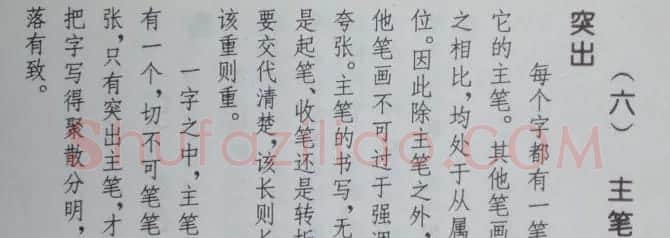 （六）　主笔
突出
每个字都有一笔
它的主笔。其他笔画
之相比，均处于从属
位。因此除主笔之外，
他笔画不可过于强调
夸张。主笔的书写，无
是起笔、收笔还是转折
要交代清楚，该长则长
该重则重。
一字之中，主笔
有一个，切不可笔笔
张，只有突出主笔，才
把字写得聚散分明，
落有致。
Shufaziliao.COM